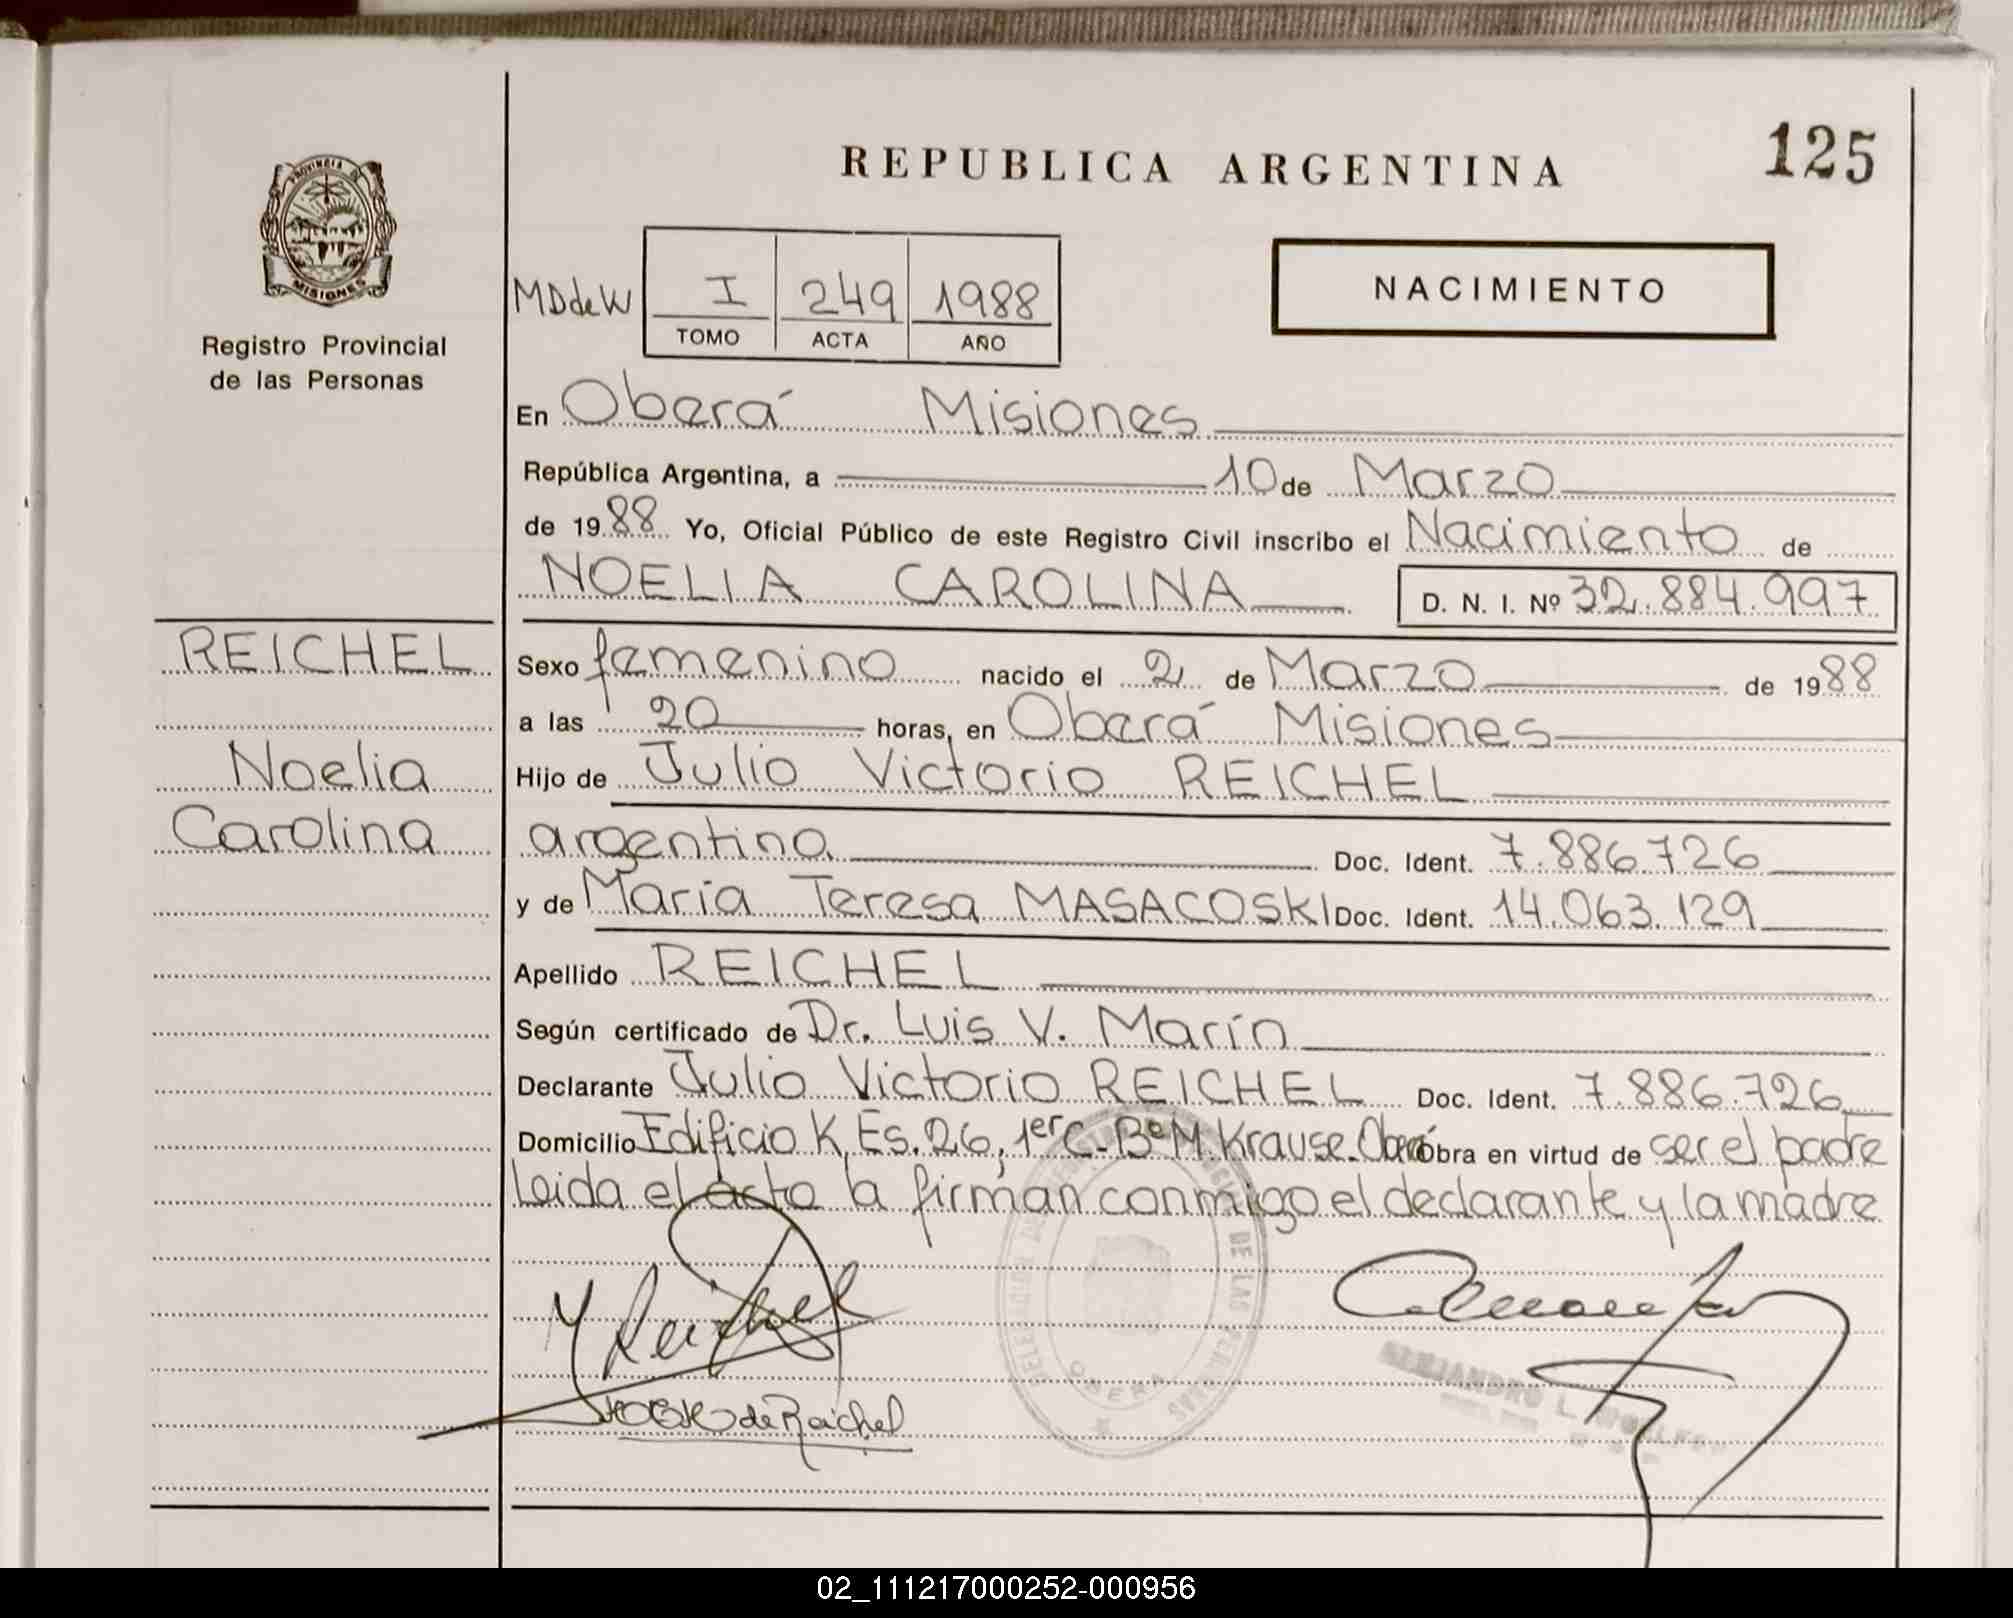 REPUBLICA ARGENTINA
125
PROVINCIA DE
MISIONES
Registro Provincial
de las Personas
MDdeW
I
249
1988
TOMO
ACTA
AÑO
NACIMIENTO
En Oberá Misiones
República Argentina, a 10 de Marzo
de 1988 Yo, Oficial Público de este Registro Civil inscribo el Nacimiento de
NOELIA CAROLINA D. N. I. Nº 32.884.997
REICHEL
Noelia
Carolina
Sexo femenino nacido el 2 de Marzo de 1988
a las 20 horas, en Oberá Misiones
Hijo de Julio Victorio REICHEL
argentino Doc. Ident. 7.886.726
y de María Teresa MASACOSKI Doc. Ident. 14.063.129
Apellido REICHEL
Según certificado de Dr. Luis V. Marín
Declarante Julio Victorio REICHEL Doc. Ident. 7.886.726
Domicilio Edificio K, Es. 26, 1er C. Bº M. Krause. Oberá Obra en virtud de ser el padre
Leida el acto la firman conmigo el declarante y la madre
Reichel
de Reichel
DE LAS PERSONAS
OBERA
02_111217000252-000956